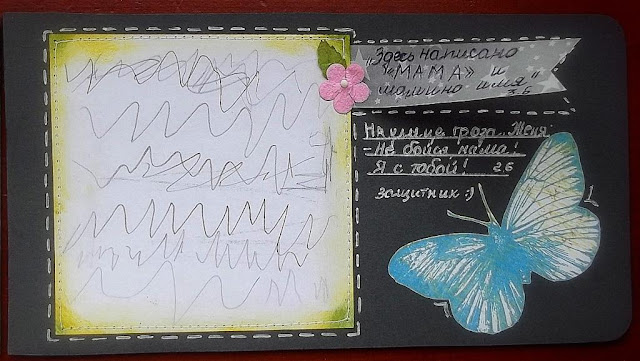 „Здесь написано
„«МАМА» и
мамино имя"
2.6
На улице гроза. Женя
- Не бойся мама!
Я с тобой! 2.6
Защитник :)